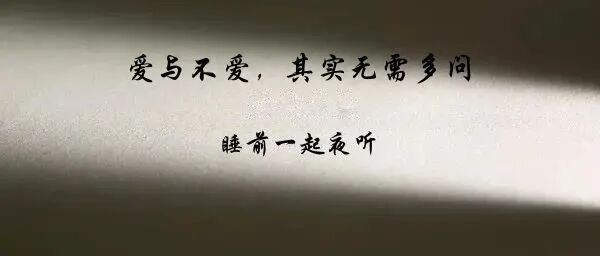 爱与不爱，其实无需多问
睡前一起夜听